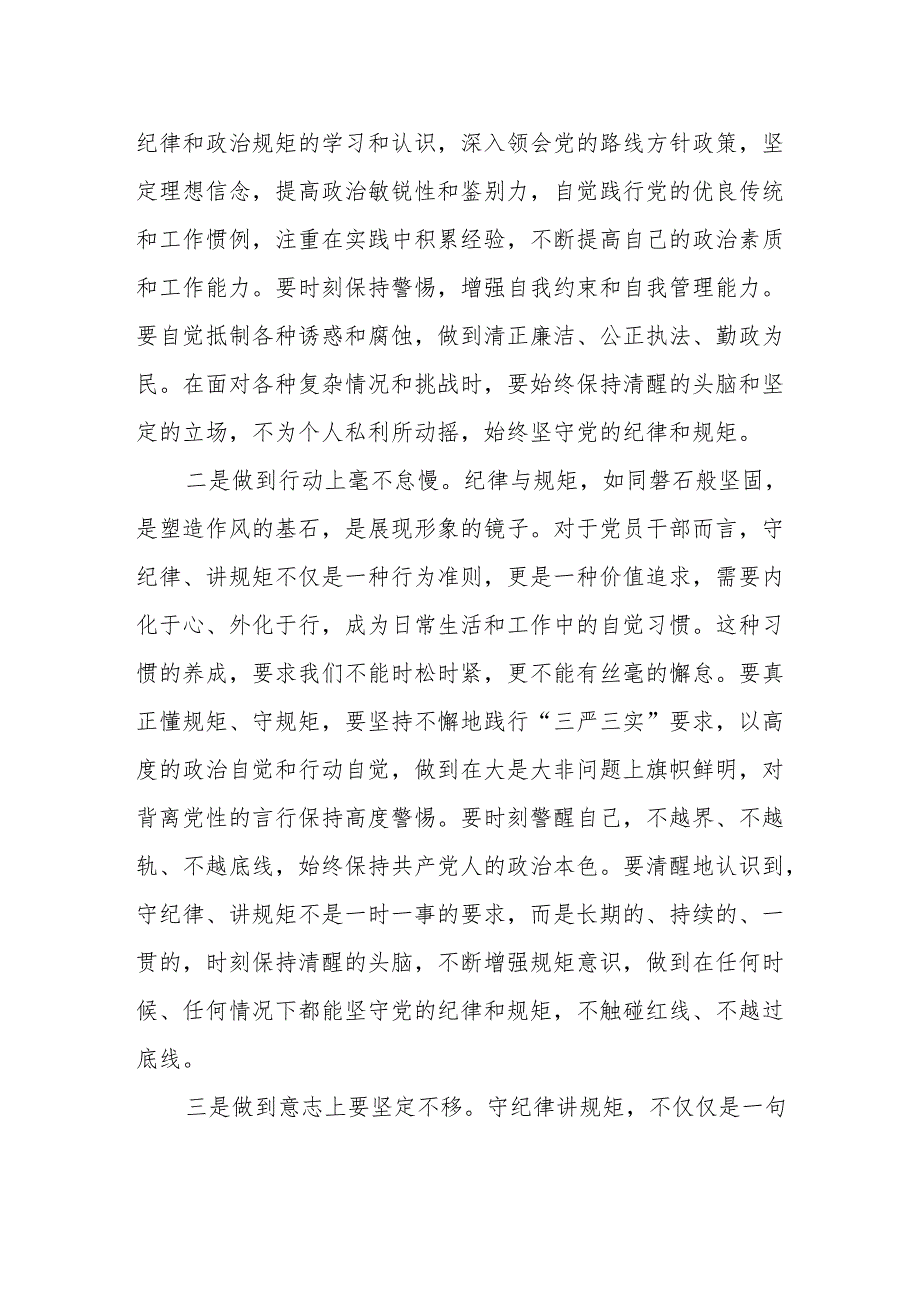 纪律和政治规矩的学习和认识，深入领会党的路线方针政策，坚
定理想信念，提高政治敏锐性和鉴别力，自觉践行党的优良传统
和工作惯例，注重在实践中积累经验，不断提高自己的政治素质
和工作能力。要时刻保持警惕，增强自我约束和自我管理能力。
要自觉抵制各种诱惑和腐蚀，做到清正廉洁、公正执法、勤政为
民。在面对各种复杂情况和挑战时，要始终保持清醒的头脑和坚
定的立场，不为个人私利所动摇，始终坚守党的纪律和规矩。
二是做到行动上毫不怠慢。纪律与规矩，如同磐石般坚固，
是塑造作风的基石，是展现形象的镜子。对于党员干部而言，守
纪律、讲规矩不仅是一种行为准则，更是一种价值追求，需要内
化于心、外化于行，成为日常生活和工作中的自觉习惯。这种习
惯的养成，要求我们不能时松时紧，更不能有丝毫的懈怠。要真
正懂规矩、守规矩，要坚持不懈地践行“三严三实”要求，以高
度的政治自觉和行动自觉，做到在大是大非问题上旗帜鲜明，对
背离党性的言行保持高度警惕。要时刻警醒自己，不越界、不越
轨、不越底线，始终保持共产党人的政治本色。要清醒地认识到，
守纪律、讲规矩不是一时一事的要求，而是长期的、持续的、一
贯的，时刻保持清醒的头脑，不断增强规矩意识，做到在任何时
候、任何情况下都能坚守党的纪律和规矩，不触碰红线、不越过
底线。
三是做到意志上要坚定不移。守纪律讲规矩，不仅仅是一句